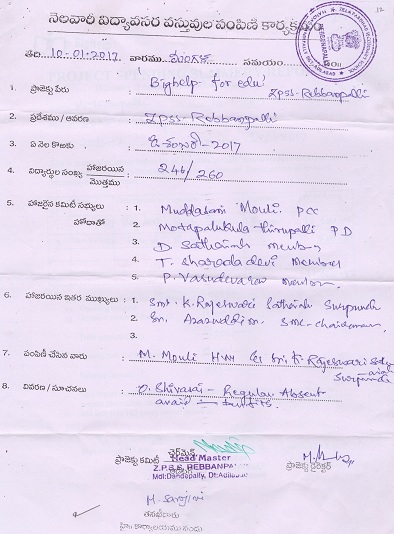 నెలవారీ విద్యావసర వస్తువుల పంపిణి కార్యక్రమం
తేది 10-01-2017 వారము మంగళ సమయం
1. ప్రాజెక్టు పేరు : Bighelp for edu'
ZPSS-Rebbanpalli
2. ప్రదేశము / ఆవరణ : ZPSS-Rebbanpalli
3. ఏ నెల కొఱకు : -2017
4. విద్యార్థుల సంఖ్య హాజరయిన : 246/260
మొత్తము
5. హాజరైన కమిటీ సభ్యులు : 1. Muddasani Mouli. PCC
హోదాతో 2. Motapalukula thirupalli PD
3. D. Sathaiah member
4. T. Sharada devi Member
5. P. Vasudevarao member
6. హాజరయిన ఇతర ముఖ్యులు : 1. Smt. K. Rajeshwari Sathaiah Surpunch
2. Sri. Azaruddin. SMC-chairman
3.
7. పంపిణీ చేసిన వారు : M. Mouli HM & Sri. K. Rajeswari
Surpunch
8. వివరణ / సూచనలు : D. Shivasai - Regular Absent
ప్రాజెక్టు కమిటీ ఛైర్మెన్ ప్రాజెక్టు డైరెక్టర్
Head Master
Z.P.S.S. REBBANPA
Mdl:Dandepally, Dt:Adilabad
M. Sarojini
తనఖీదారు